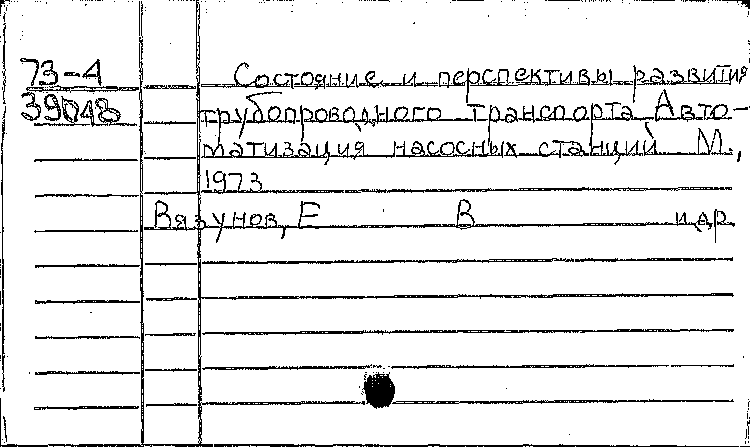 73-4 Состояние и перспективы развития
39048 трубопроводного транспорта Авто-
матизация насосных станций М.,
1973
Вязунов, Е В и др